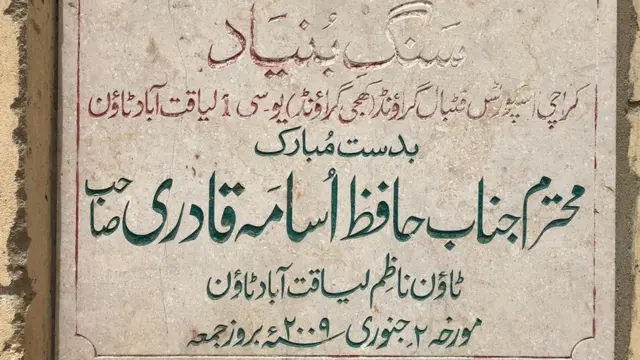 سنگِ بُنیاد
کراچی اسپورٹس فٹبال گراؤنڈ (کھجی گراؤنڈ) یو سی 1 لیاقت آباد ٹاؤن
بدست مُبارک
محترم جناب حافظ اُسامَہ قادری صاحب
ٹاؤن ناظِم لیاقت آباد ٹاؤن
مورخہ ۲ جنوری ۲۰۰۹ء بروز جمعہ